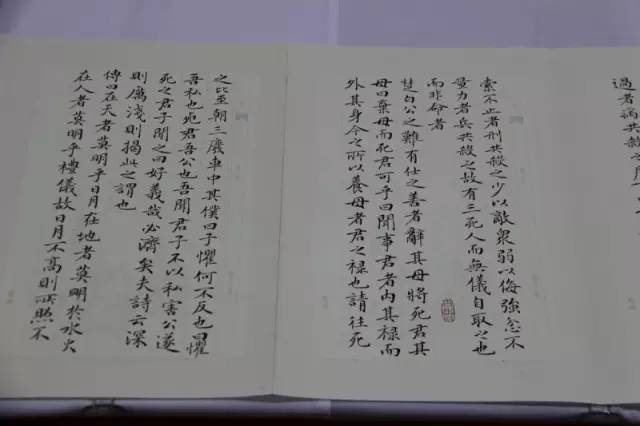 過者病共殺之
索不止者刑共殺之少以敵衆弱以侮強忿不
量力者兵共殺之故有三死人而無儀自取之也
而非命者
楚白公之難有仕之善者辭其母將死君其
母曰棄母而死君可乎曰聞事君者內其祿而
外其身今之所以養母者君之祿也請往死
之比至朝三廢車中其僕曰子懼何不反也曰懼
吾私也死君吾公也吾聞君子不以私害公遂
死之君子聞之曰好義哉必濟矣夫詩云深
則厲淺則揭此之謂也
傳曰在天者莫明乎日月在地者莫明於水火
在人者莫明乎禮儀故日月不高則所照不